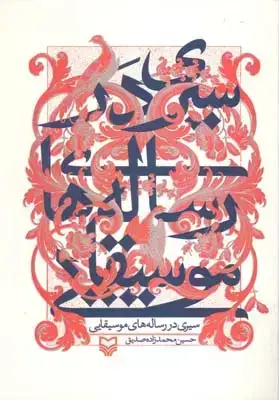 سیری در
رساله‌های
موسیقایی
سیری در رساله‌های موسیقایی
حسین محمدزاده صدیق